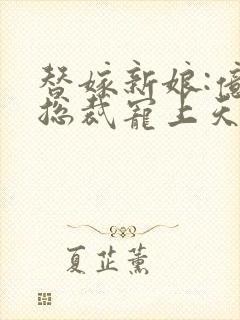 替嫁新娘:億
总裁宠上天
夏芷薰